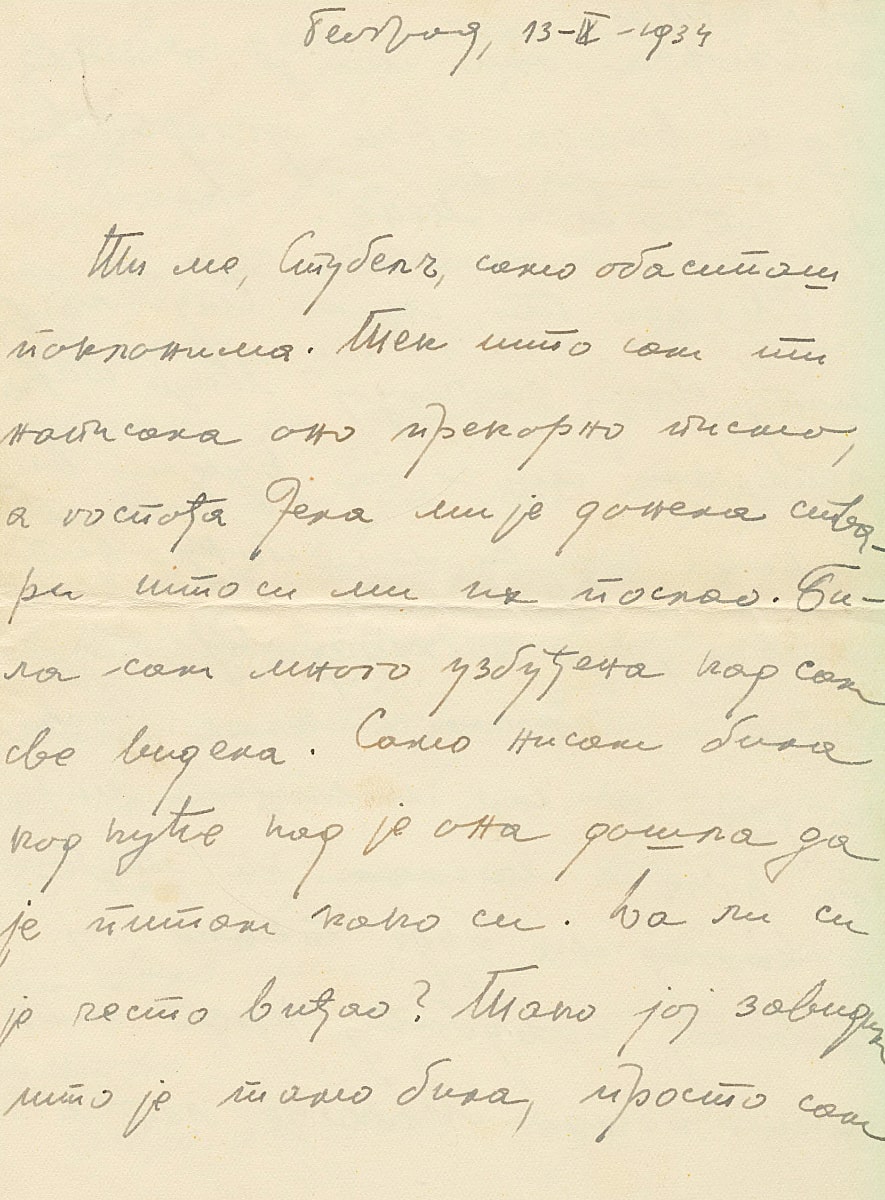 Београд, 13-IX-1934
Ти ме, Стубепч, само обасипаш
поклонима. Тек што сам ти
написала оно прекорно писмо,
а госпођа Јела ми је донела ства-
ри што си ми их послао. Би-
ла сам много узбуђена кад сам
све видела. Само нисам била
код куће кад је она дошла да
је питам како си. Да ли си
је често виђао? Тако јој завидим
што је тамо била, просто сам